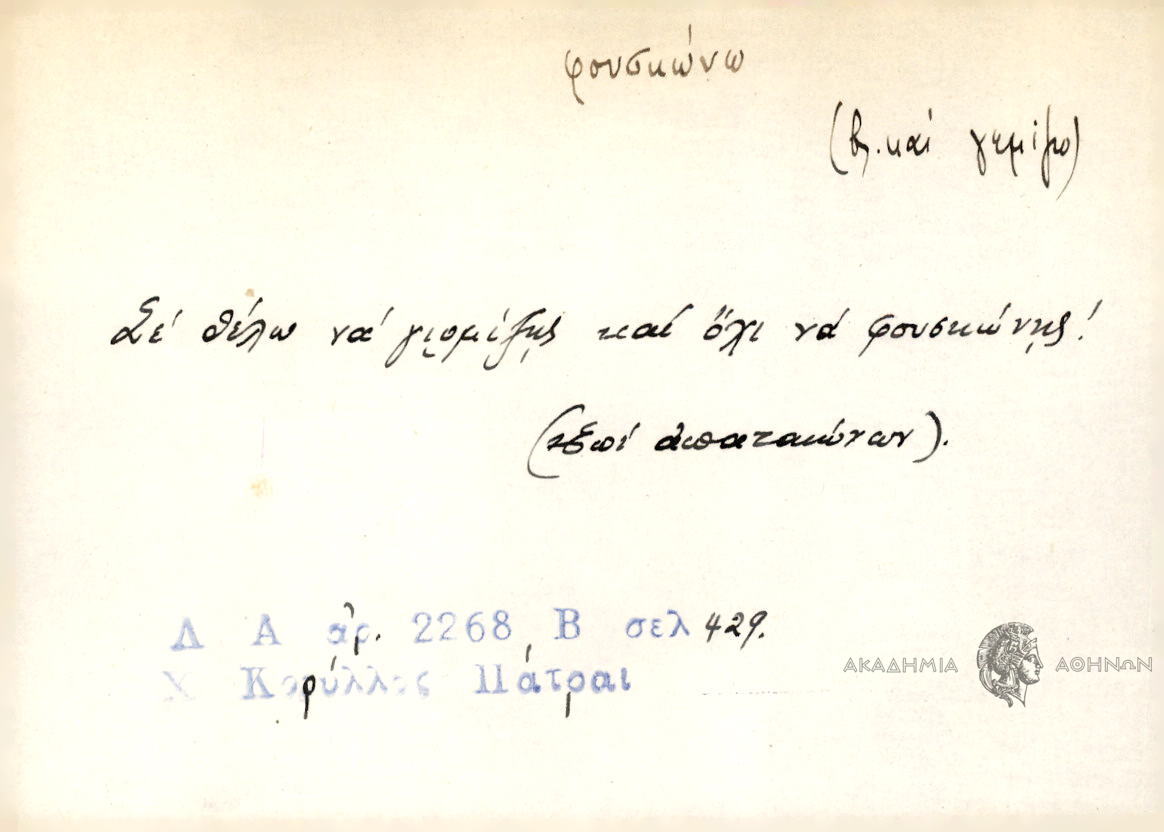 φουσκώνω
(βλ. καί γεμίζω)
Σέ θέλω νά γιομίζῃς καί ὄχι νά φουσκώνῃς!
(Ἐπί ἀπατεώνων).
Λ Α ἀρ. 2268 Β σελ 429.
Χ Κορύλλος Πάτραι
ΑΚΑΔΗΜΙΑ ΑΘΗΝΩΝ